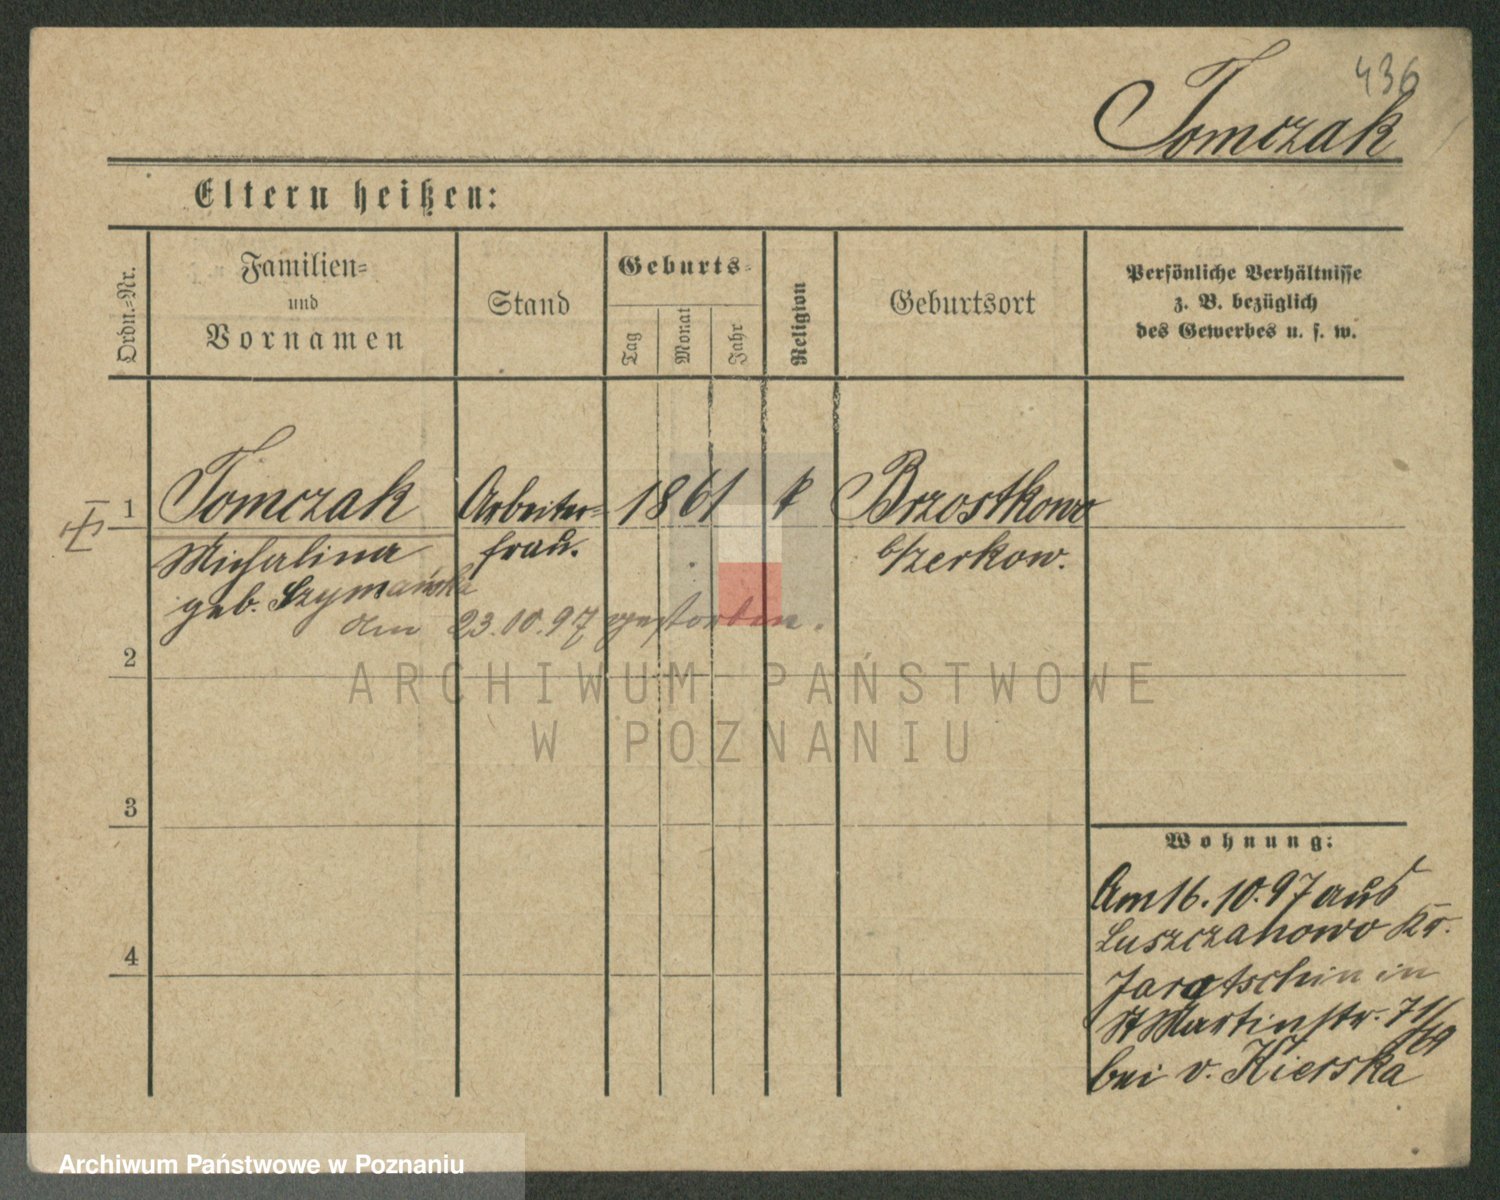 436
Tomczak
Eltern heißen:
Ordn.-Nr.
Familien-
und
Vornamen
Stand
Geburts-
Tag
Monat
Jahr
Religion
Geburtsort
Persönliche Verhältnisse
z. B. bezüglich
des Gewerbes u. s. w.
1
Tomczak
Arbeiter-
1861
k
Brzostkowo
Michalina
frau.
b/Zerkow.
geb. Szymańska
am 23.10.97 gestorben.
2
ARCHIWUM PAŃSTWOWE
W POZNANIU
3
Wohnung:
Am 16.10.97 aus
Luszczanowo Kr.
4
Jarotschin in
St Martinstr. 71/69
bei v. Kierska
Archiwum Państwowe w Poznaniu